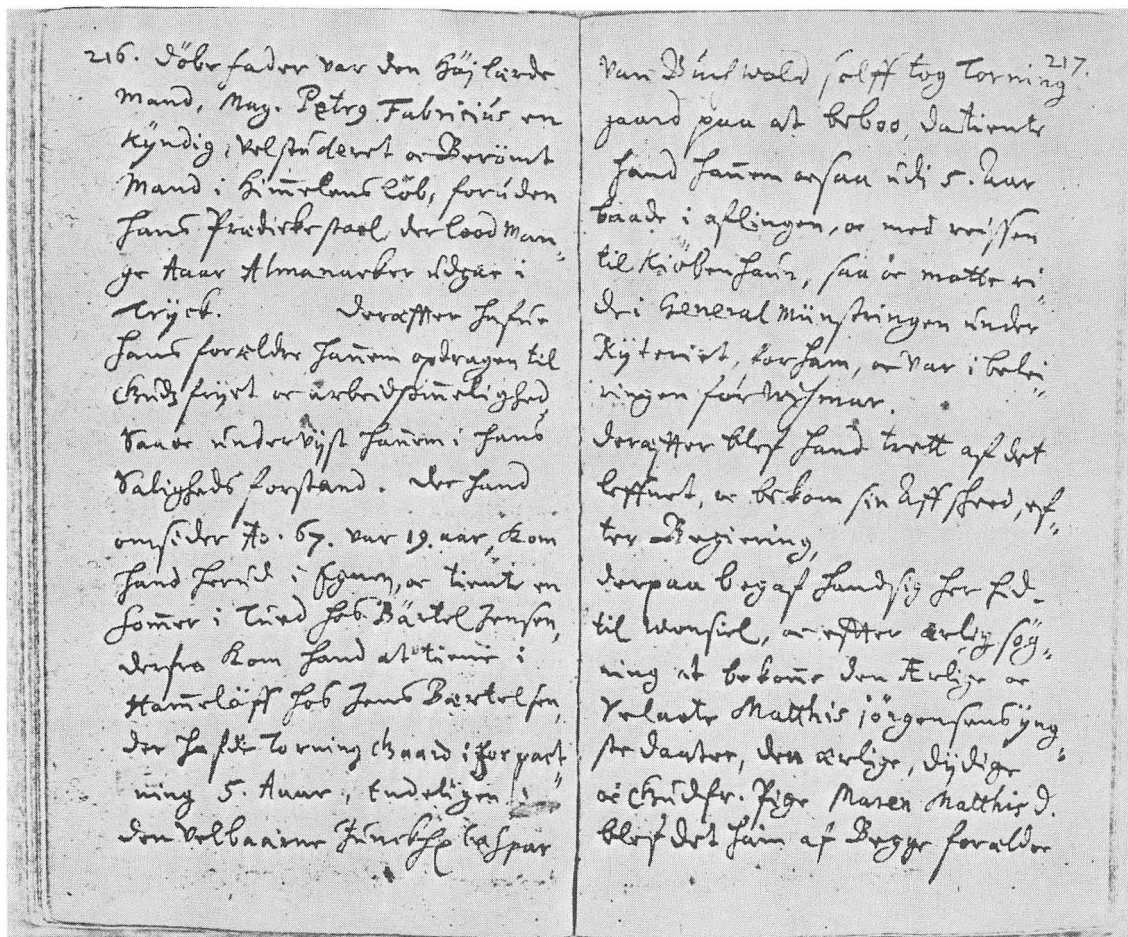 216. Döbe fader var den Höjlærde
Mand, Mag. Petrg Fabricius en
Kyndig, velstuderet oc Berömt
Mand i Himmelens löb, foruden
hans Prædickestoel, der lood Man„
ge Aaar Almanacker udgae i
Tryck. Deræffter hafue
hans forældre hannem opdragen til
Gudsfryct oc arbeidsommelighed,
Saaoc undervjst hannem i hans
Saligheds forstand. Der hand
omsider Ao. 67. var 19 aar, Kom
hand herud i Egnen, oc tiente en
Sommer i hos Bärtel Jensen,
derfra Kom hand at tiene i
Hammelöff hos Jens Bertelsen,
der hafde Torning Gaard i forpact„
ning 5. Aaar, Endeligen i
den Velbaarne Junckh Caspar
217.
van Buchwald selff tog Torning
gaard paa at beboo, da tiente
hand hannem ocsaa udi 5. Aar
baade i aflingen, oc med reissen
til Kiöbenhaun, saa oc motte ri„
de i General Münstringen under
Ryteriet, for ham, oc var i belei„
ringen for Wissmar.
Deræffter blef hand trett af det
leffnet, oc bekom sin Affscheed, ef„
ter Begiering,
Derpaa begaf hand sig her hid
til oc effter ærlig sög„
ning at bekomme den Ærlige oc
Velacte Matthis jörgensens yng„
ste daater, den ærlige, dydige
oc Gudfr. Pige Maren Matthis d.
blef det ham af Begge forældre